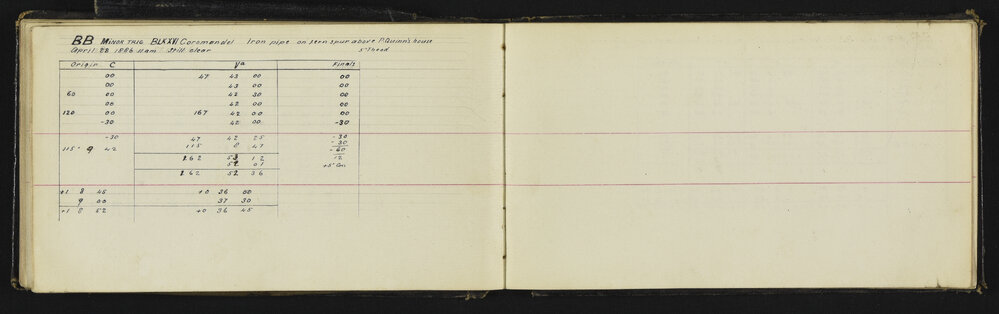 BB Minor Trig BLKXVI Coromandel Iron pipe on fern spur above P. Quinn's house
April 28 1886 11am Still clear 5" Theod
Origin C Va Finals
00 47 43 00 00
00 43 00 00
60 00 42 30 00
00 42 00 00
120 00 167 42 00 00
-30 42 00 -30
-30 47 42 25 -30
115 8 47 -30
115° 9 42 -60
162 51 12 12
52 07 +5" Con
162 52 36
+1 8 45 +0 36 00
9 00 37 30
+1 8 52 +0 36 45